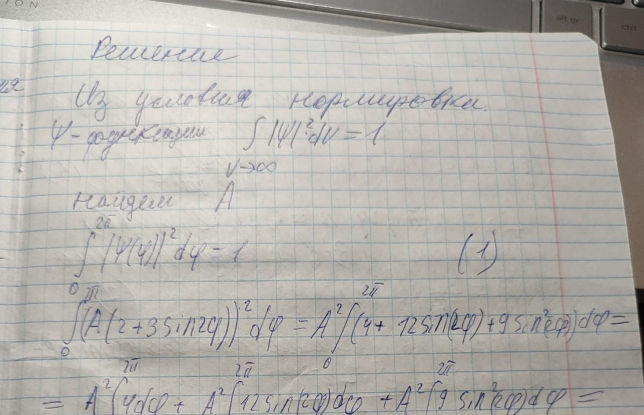 Решение
Из условия нормировка
Ψ-функции ∫|Ψ|²dV = 1
V→∞
найдем A
∫₀^{2π} |Ψ(φ)|² dφ = 1 (1)
∫₀^{2π} (A(2+3sin2φ))² dφ = A² ∫₀^{2π} (4 + 12sin(2φ) + 9sin²(2φ))dφ =
= A² ∫^{2π} 4dφ + A² ∫^{2π} 12sin(2φ)dφ + A² ∫^{2π} 9sin²(2φ)dφ =